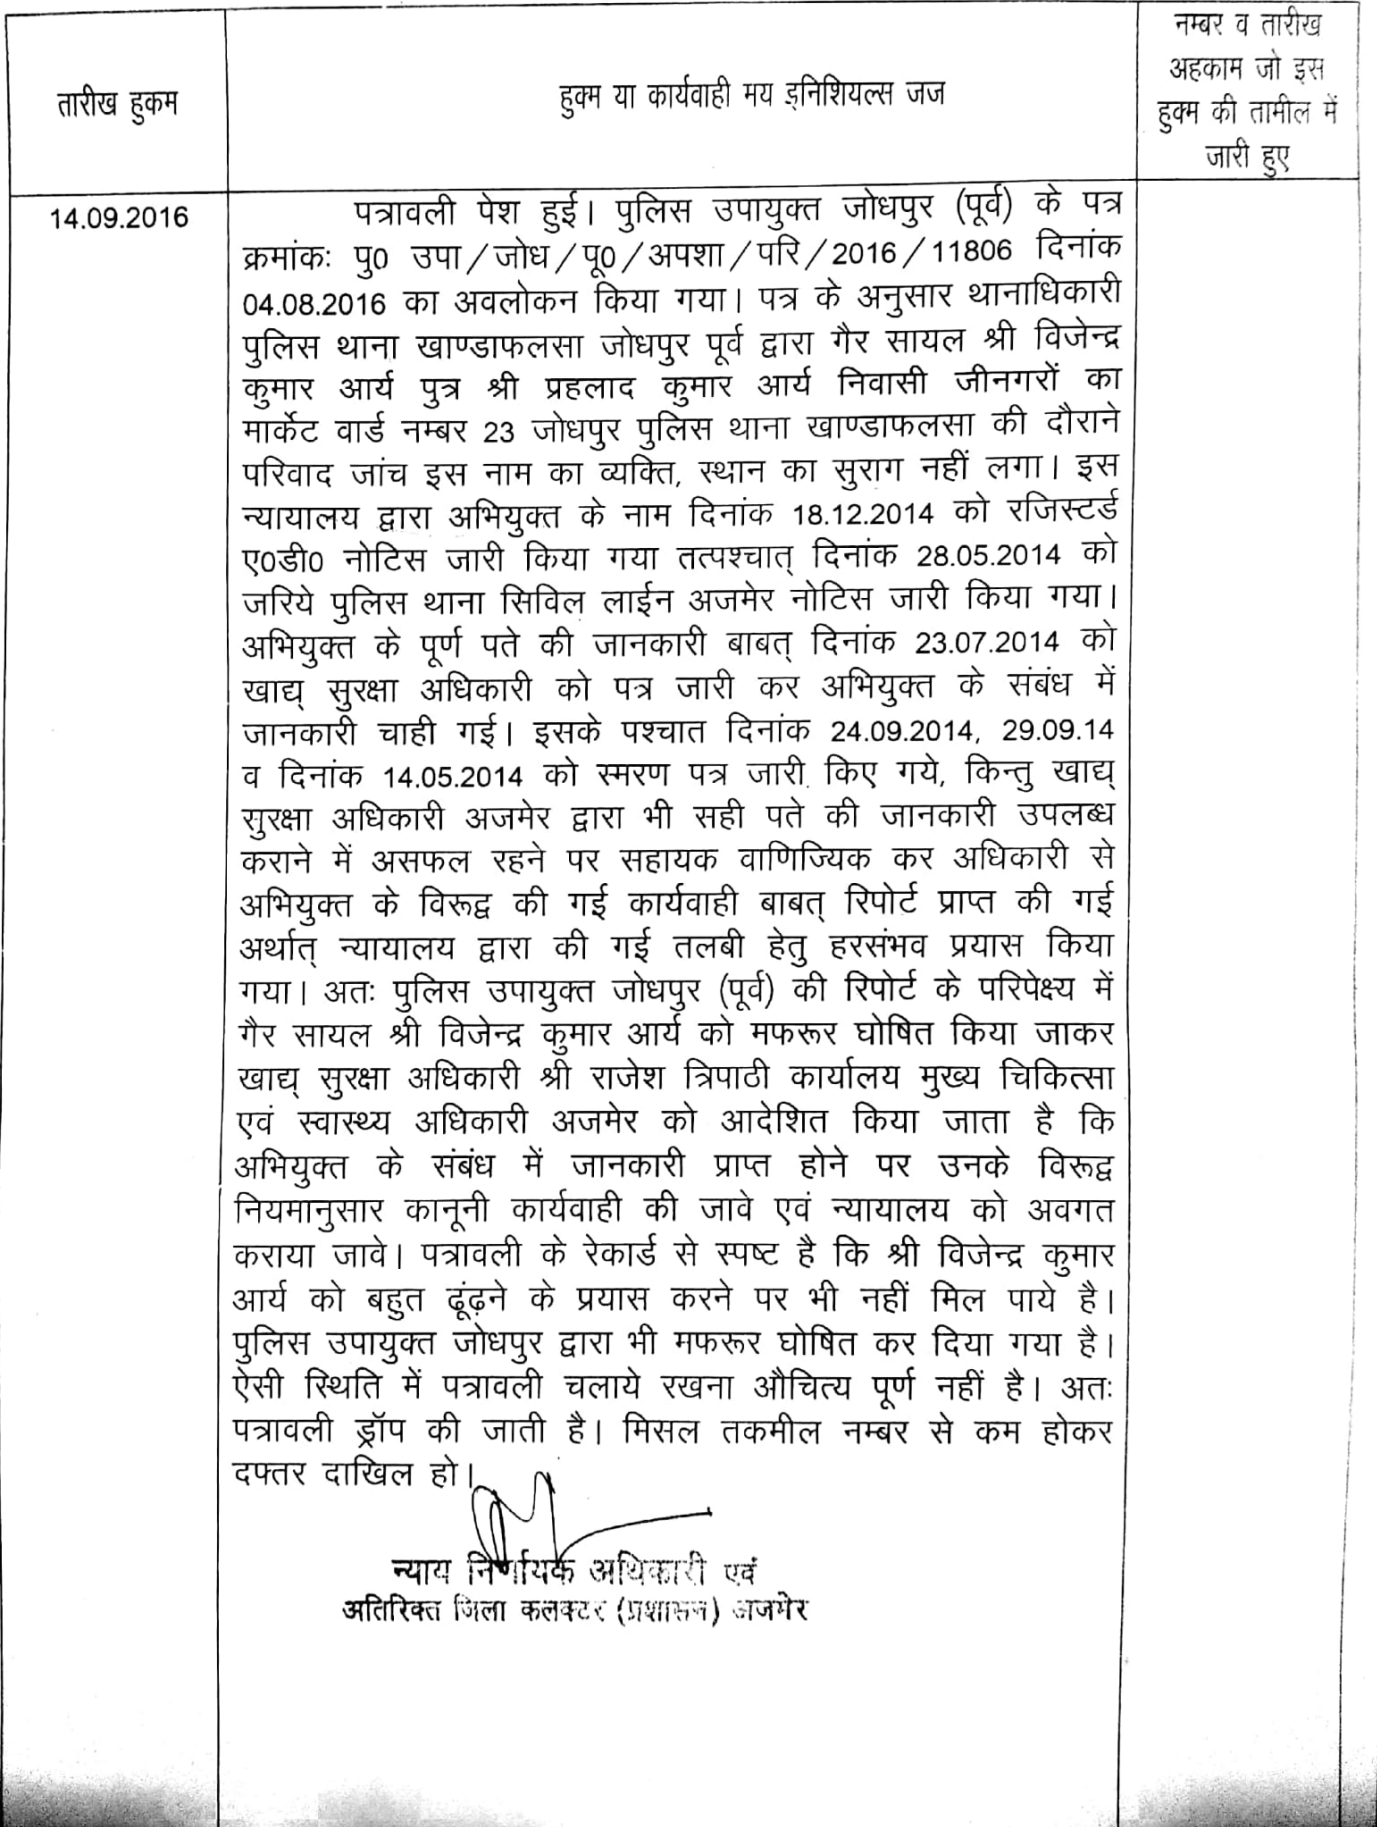 तारीख हुकम
हुक्म या कार्यवाही मय इ्निशियल्स जज
नम्बर व तारीख
अहकाम जो इस
हुक्म की तामील में
जारी हुए
14.09.2016
पत्रावली पेश हुई। पुलिस उपायुक्त जोधपुर (पूर्व) के पत्र
क्रमांकः पु0 उपा/जोध/पू0/अपशा/परि/2016/11806 दिनांक
04.08.2016 का अवलोकन किया गया। पत्र के अनुसार थानाधिकारी
पुलिस थाना खाण्डाफलसा जोधपुर पूर्व द्वारा गैर सायल श्री विजेन्द्र
कुमार आर्य पुत्र श्री प्रहलाद कुमार आर्य निवासी जीनगरों का
मार्केट वार्ड नम्बर 23 जोधपुर पुलिस थाना खाण्डाफलसा की दौराने
परिवाद जांच इस नाम का व्यक्ति, स्थान का सुराग नहीं लगा। इस
न्यायालय द्वारा अभियुक्त के नाम दिनांक 18.12.2014 को रजिस्टर्ड
ए0डी0 नोटिस जारी किया गया तत्पश्चात् दिनांक 28.05.2014 को
जरिये पुलिस थाना सिविल लाईन अजमेर नोटिस जारी किया गया।
अभियुक्त के पूर्ण पते की जानकारी बाबत् दिनांक 23.07.2014 को
खाद्य् सुरक्षा अधिकारी को पत्र जारी कर अभियुक्त के संबंध में
जानकारी चाही गई। इसके पश्चात दिनांक 24.09.2014, 29.09.14
व दिनांक 14.05.2014 को स्मरण पत्र जारी किए गये, किन्तु खाद्य्
सुरक्षा अधिकारी अजमेर द्वारा भी सही पते की जानकारी उपलब्ध
कराने में असफल रहने पर सहायक वाणिज्यिक कर अधिकारी से
अभियुक्त के विरूद्व की गई कार्यवाही बाबत् रिपोर्ट प्राप्त की गई
अर्थात् न्यायालय द्वारा की गई तलबी हेतु हरसंभव प्रयास किया
गया। अतः पुलिस उपायुक्त जोधपुर (पूर्व) की रिपोर्ट के परिपेक्ष्य में
गैर सायल श्री विजेन्द्र कुमार आर्य को मफरूर घोषित किया जाकर
खाद्य् सुरक्षा अधिकारी श्री राजेश त्रिपाठी कार्यालय मुख्य चिकित्सा
एवं स्वास्थ्य अधिकारी अजमेर को आदेशित किया जाता है कि
अभियुक्त के संबंध में जानकारी प्राप्त होने पर उनके विरूद्व
नियमानुसार कानूनी कार्यवाही की जावे एवं न्यायालय को अवगत
कराया जावे। पत्रावली के रेकार्ड से स्पष्ट है कि श्री विजेन्द्र कुमार
आर्य को बहुत ढूंढ़ने के प्रयास करने पर भी नहीं मिल पाये है।
पुलिस उपायुक्त जोधपुर द्वारा भी मफरूर घोषित कर दिया गया है।
ऐसी स्थिति में पत्रावली चलाये रखना औचित्य पूर्ण नहीं है। अतः
पत्रावली ड्रॉप की जाती है। मिसल तकमील नम्बर से कम होकर
दफ्तर दाखिल हो।
न्याय निर्णायक अधिकारी एवं
अतिरिक्त जिला कलक्टर (प्रशासन) अजमेर